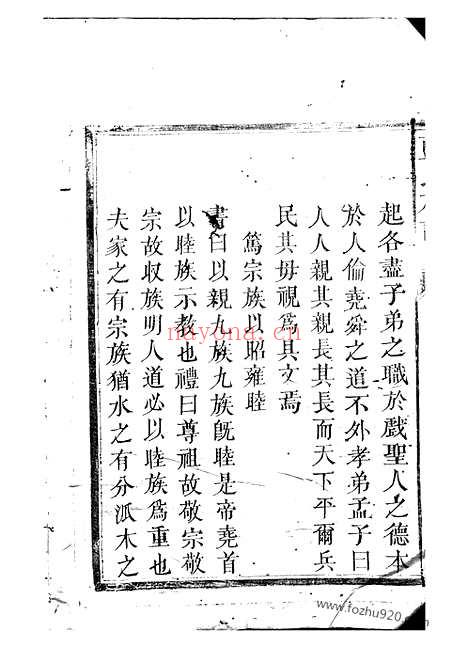 起各盡子弟之職於戲聖人之德本
於人倫堯舜之道不外孝弟孟子曰
人人親其親長其長而天下平爾兵
民其毋視爲具文焉
篤宗族以昭雍睦
書曰以親九族九族旣睦是帝堯首
以睦族示教也禮曰尊祖故敬宗敬
宗故収族明人道必以睦族爲重也
夫家之有宗族猶水之有分派木之
nayona.cn
www.fozhu920.com